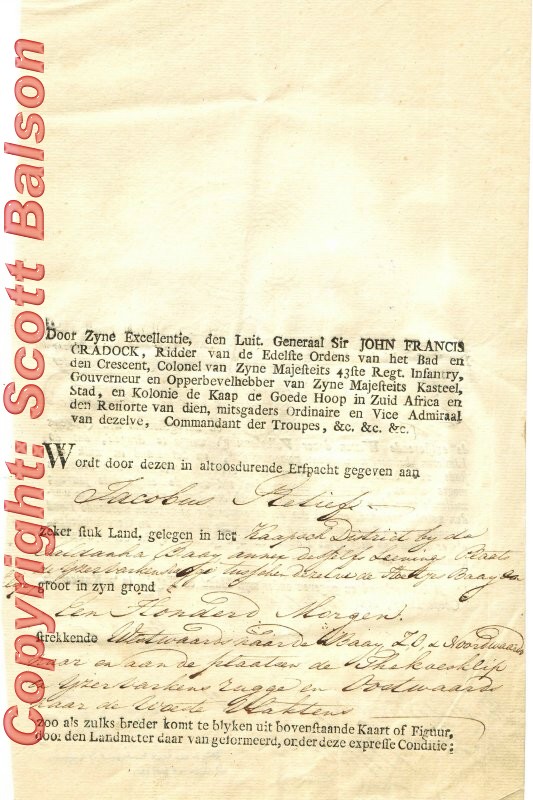 Copyright: Scott Balson
Door Zyne Excellentie, den Luit. Generaal Sir JOHN FRANCIS
CRADOCK, Ridder van de Edelste Ordens van het Bad en
den Crescent, Colonel van Zyne Majesteits 43ste Regt. Infantry,
Gouverneur en Opperbevelhebber van Zyne Majesteits Kasteel,
Stad, en Kolonie de Kaap de Goede Hoop in Zuid Africa en
den Resorte van dien, mitsgaders Ordinaire en Vice Admiraal
van dezelve, Commandant der Troupes, &c. &c. &c.
Wordt door dezen in altoosdurende Erfpacht gegeven aan
Jacobus
zeker stuk Land, gelegen in het Kaapsch District by de
Baay Plaats
tusschen Baay en
groot in zyn grond
Een Honderd Morgen.
strekkende Westwaards Baay Z.O. & Noordwaards
en aan de plaatsen de
en Oostwaards
naar de Vlaktens
zoo als zulks breder komt te blyken uit bovenstaande Kaart of Figuur,
door den Landmeter daar van geformeerd, onder deze expresse Conditie: